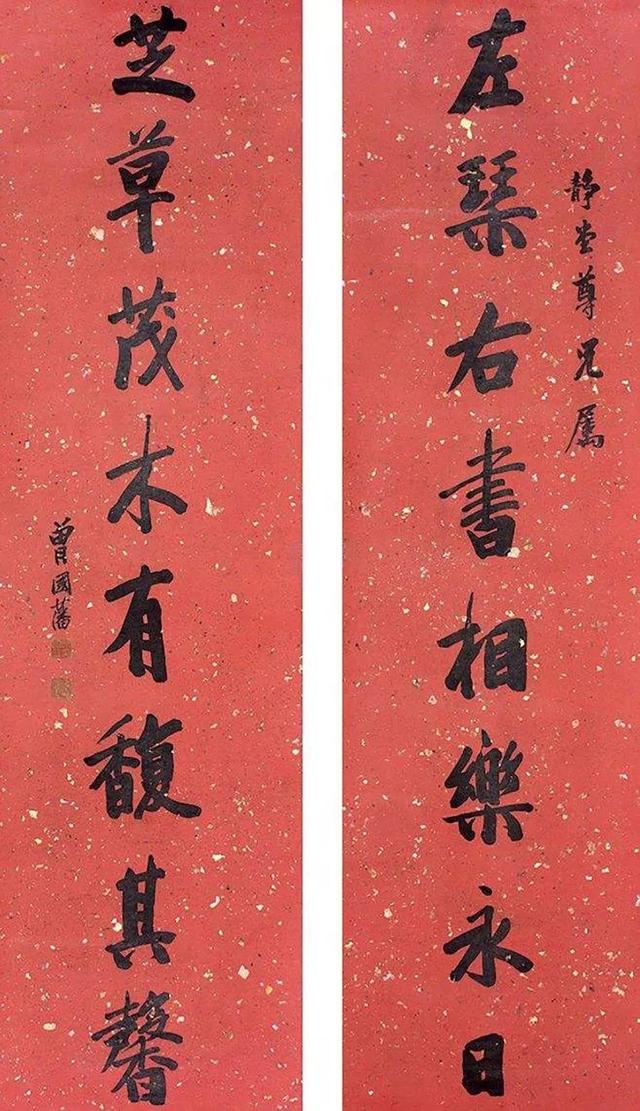 左琴右書相樂永日
靜堂尊兄屬
芝草茂木有馥其馨
曾國藩